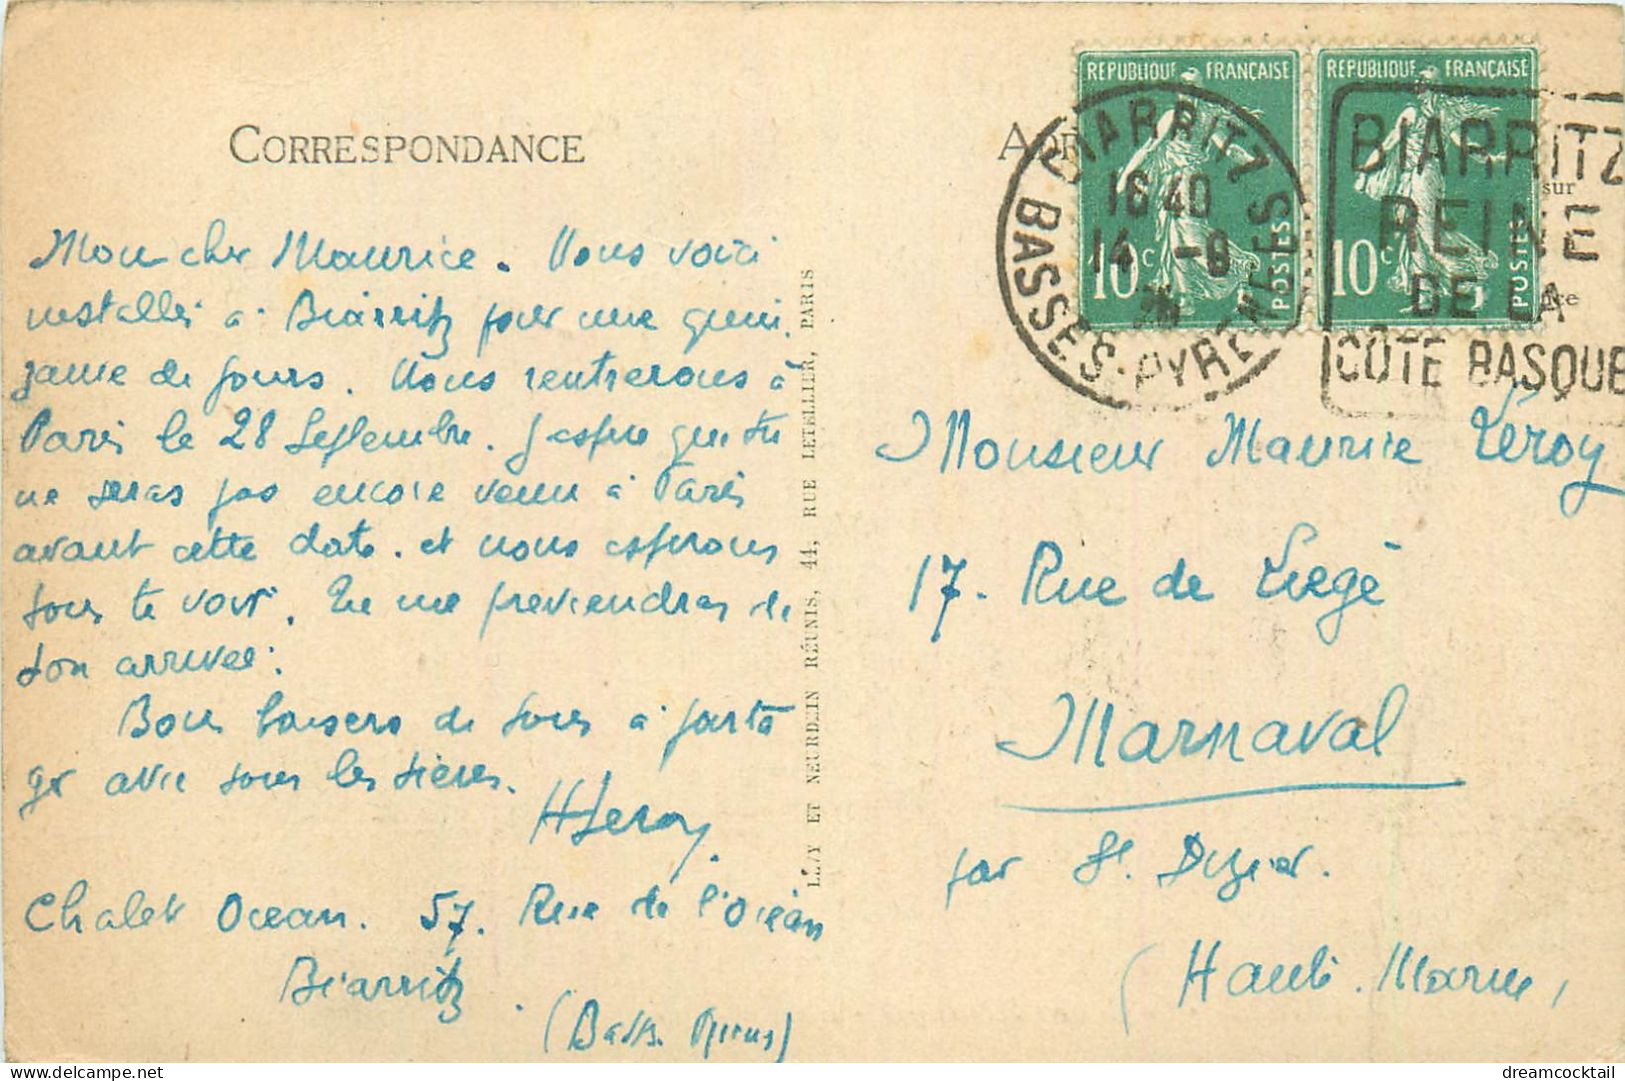 CORRESPONDANCE
Mon cher Maurice. Nous voici
installés à Biarritz pour une quin
zaine de jours. Nous rentrerons à
Paris le 28 Septembre. J'espère que tu
ne seras pas encore venu à Paris
avant cette date. et nous espérons
tous te voir. Tu me previendras de
ton arrivée.
Bons baisers de tous à parta
ger avec tous les tiens.
HLeroy.
Chalet Océan. 57. Rue de l'Océan
Biarritz.
(Bass. Pyrens)
LÉVY ET NEURDEIN RÉUNIS, 44, RUE LETELLIER, PARIS
RÉPUBLIQUE FRANÇAISE
10 c
POSTES
RÉPUBLIQUE FRANÇAISE
10 c
POSTES
BIARRITZ
16 40
14 -9
BASSES-PYRENEES
BIARRITZ
REINE
DE LA
COTE BASQUE
sur
ce
Monsieur Maurice Leroy
17. Rue de Liège
Marnaval
par St. Dizier.
(Haute. Marne)
dreamcocktail